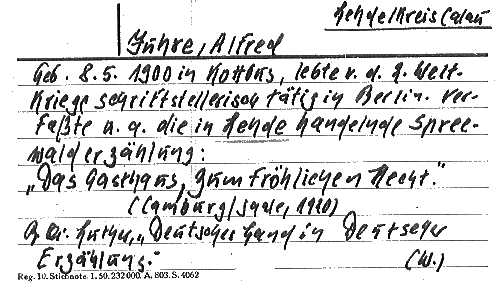 Lehde/Kreis Calau
Jühre, Alfred
Geb. 8.5. 1900 in Kottbus, lebte v. d. 2. Welt-
kriege schriftstellerisch tätig in Berlin. Ver-
faßte u. a. die in Lehde handelnde Spree-
walderzählung:
"Das Gasthaus, zum Fröhlichen Hecht."
(Camburg/Saale, 1920)
"Deutsches Land in Deutscher
Erzählung." (W.)
Reg. 10. Stichnote. 1. 50. 232 000. A. 803. S. 4062